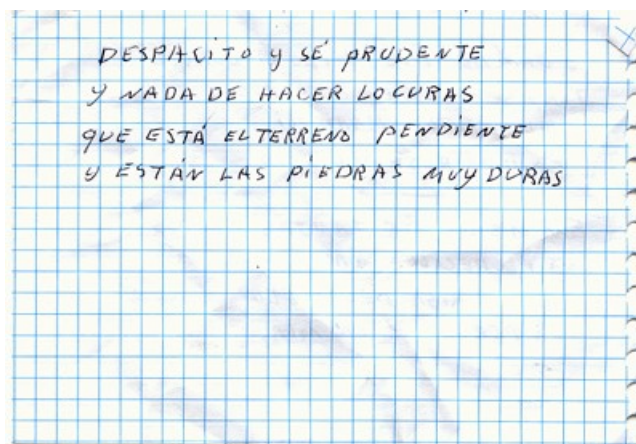 DESPACITO y SÉ PRUDENTE
y NADA DE HACER LOCURAS
QUE ESTÁ EL TERRENO PENDIENTE
y ESTÁN LAS PIEDRAS MUY DURAS